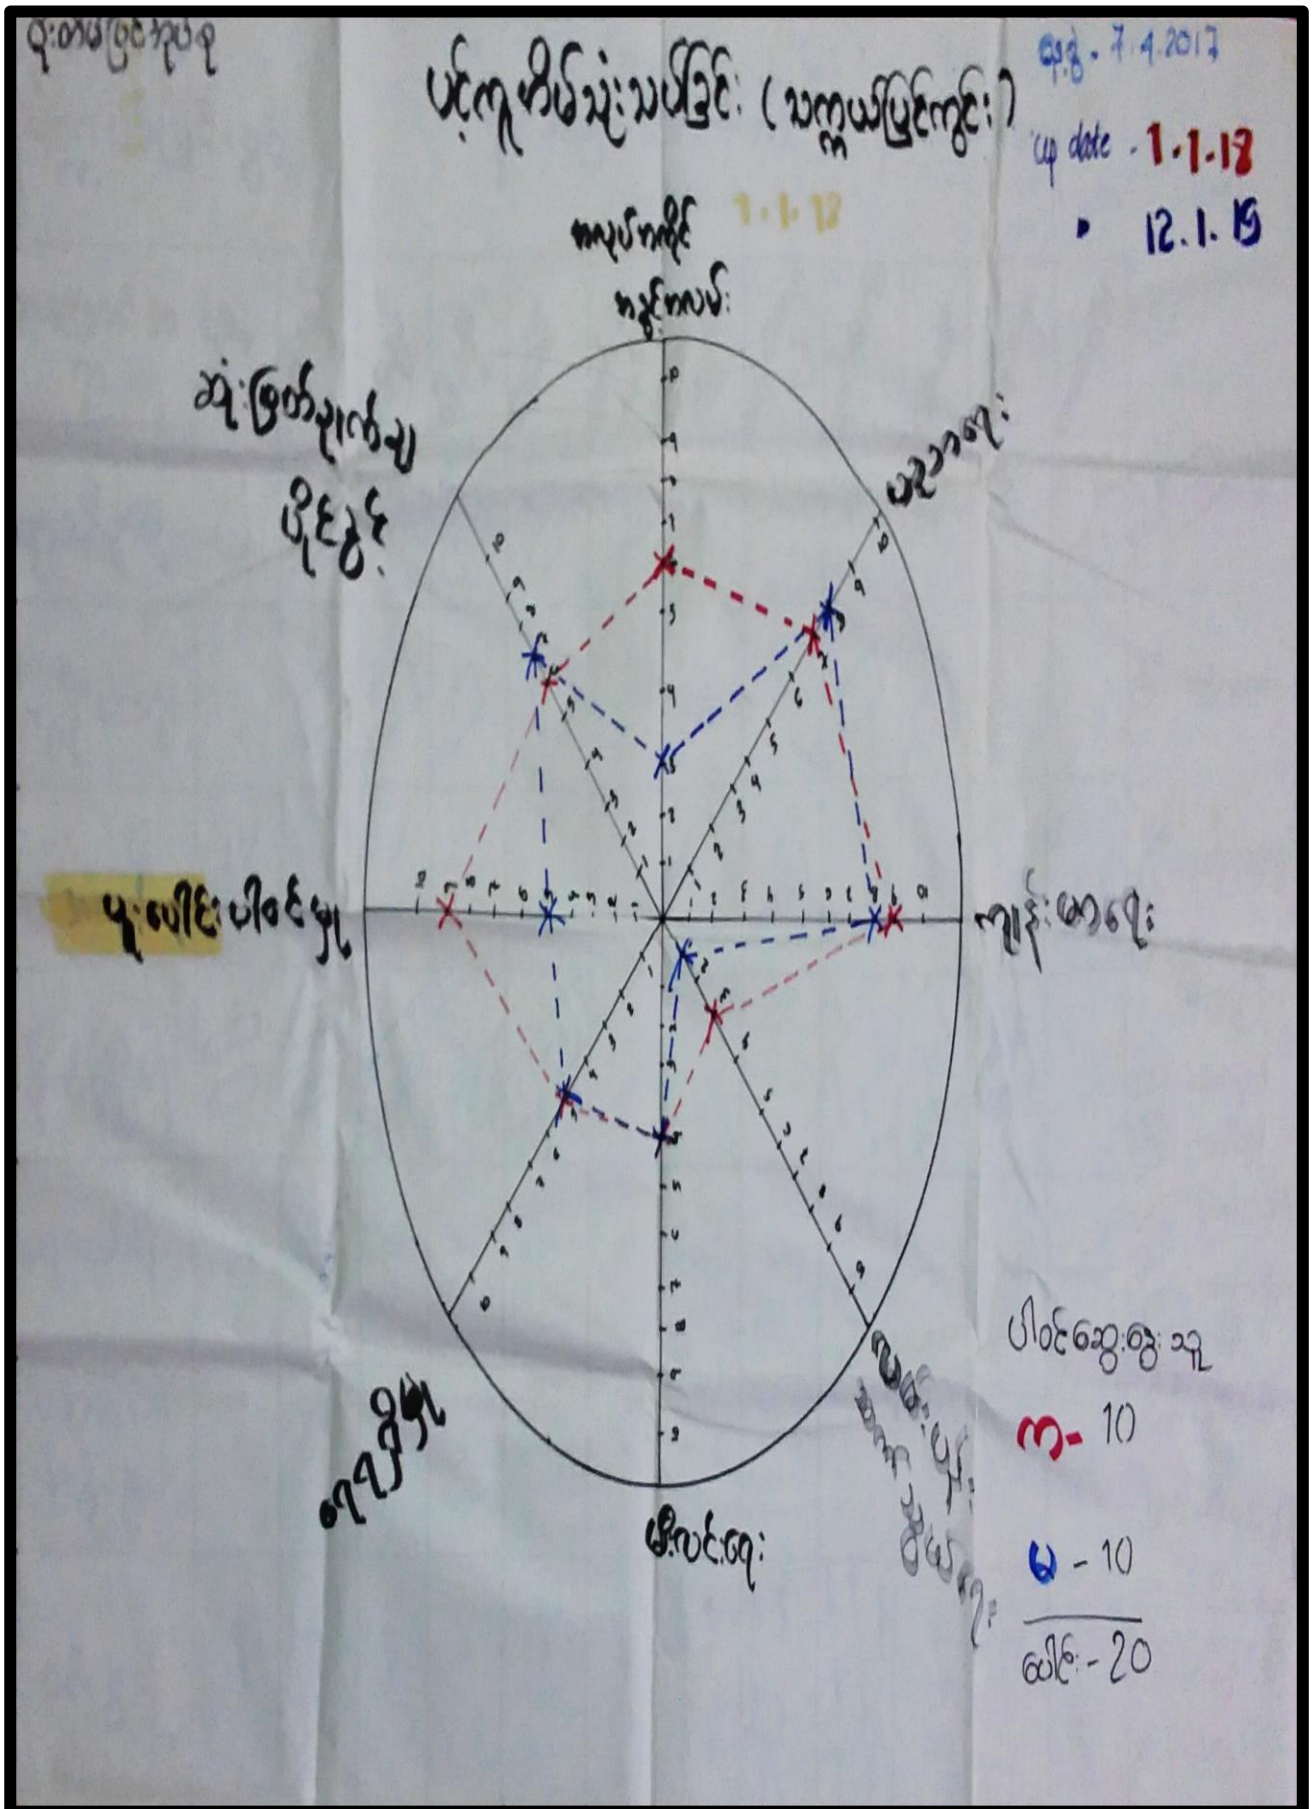 ပင့်ကူအိမ်သုံးသပ်ခြင်း (သက္ကယ်ပြင်ကွင်း)
7.4.2017
up date - 1.1.18
" 12.1.19
1.1.18
အလုပ်အကိုင်
အခွင့်အလမ်း
ဆုံးဖြတ်ချက်ချ
ပိုင်ခွင့်
ပညာရေး
ပူးပေါင်းပါဝင်မှု
ကျန်းမာရေး
ရေရရှိမှု
မီးလင်းရေး
လမ်းပန်း
ဆက်သွယ်ရေး
ပါဝင်ဆွေးနွေးသူ
ကျ- 10
မ - 10
ပေါင်း - 20